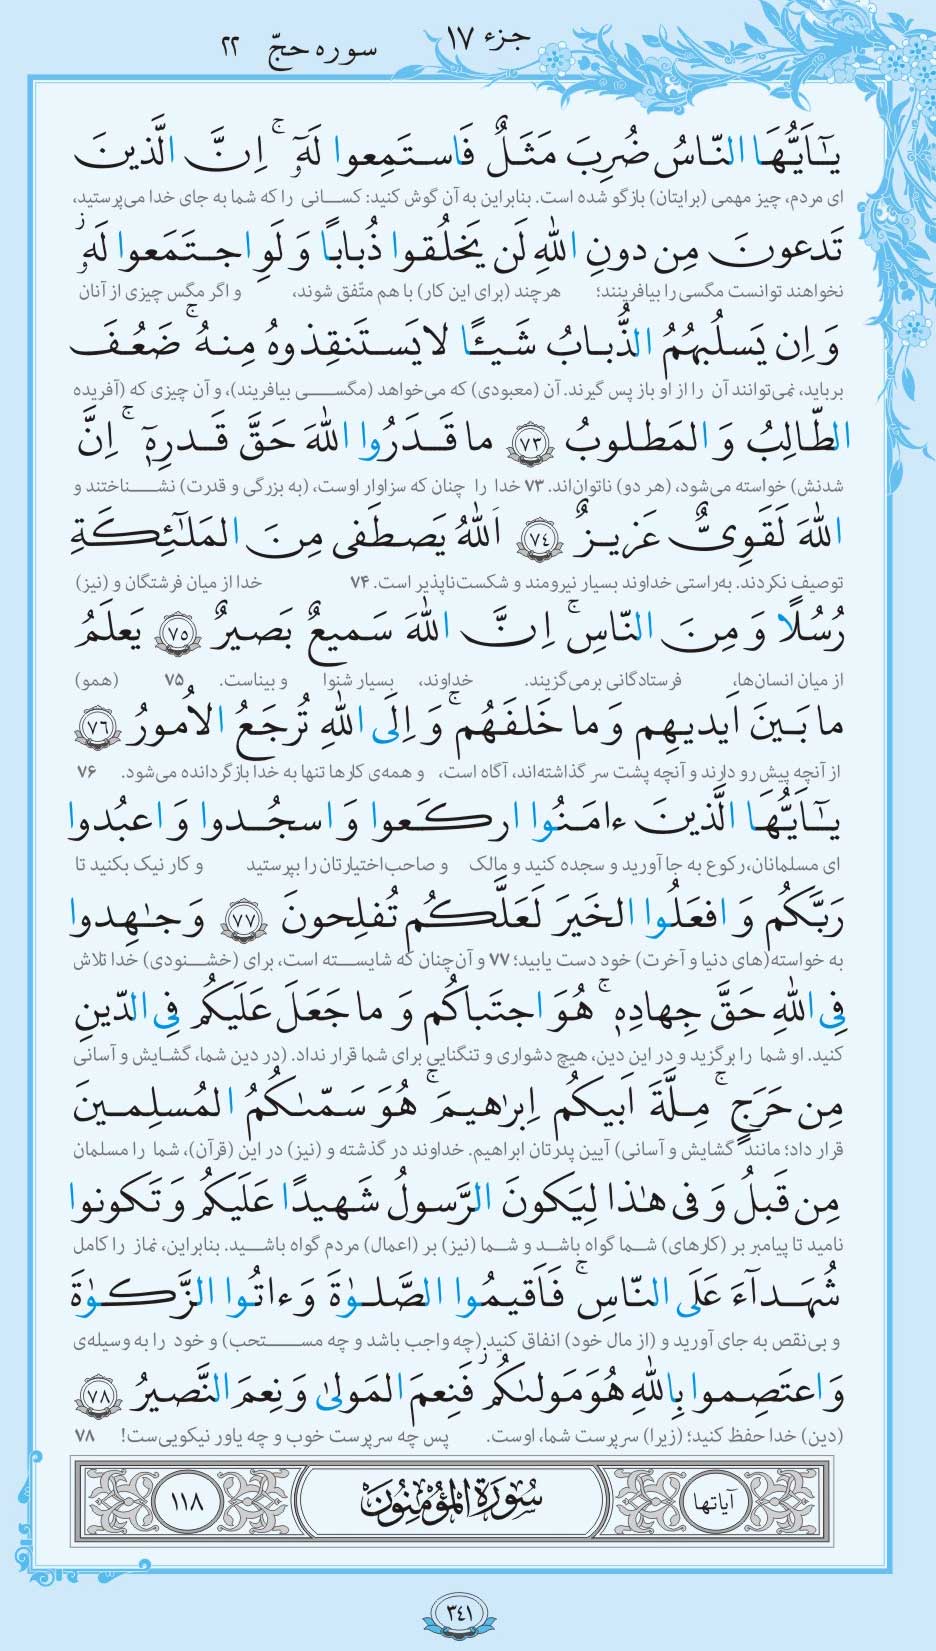 جزء ۱۷
سوره حجّ ۲۲
يـٰٓاَيُّهَا النّاسُ ضُرِبَ مَثَلٌ فَاستَمِعوا لَهٗٓ ۚ اِنَّ الَّذينَ
ای مردم، چیز مهمی (برایتان) بازگو شده است. بنابراین به آن گوش کنید: کسانی را که شما به جای خدا می‌پرستید،
تَدعونَ مِن دونِ اللّٰهِ لَن يَخلُقوا ذُبابًا وَ لَوِ اجتَمَعوا لَهٗ ز
نخواهند توانست مگسی را بیافرینند؛ هرچند (برای این کار) با هم متّفق شوند، و اگر مگس چیزی از آنان
وَ اِن يَسلُبهُمُ الذُّبابُ شَيـًٔا لا يَستَنقِذوهُ مِنهُ ۚ ضَعُفَ
برباید، نمی‌توانند آن را از او باز پس گیرند. آن (معبودی) که می‌خواهد (مگسی بیافریند)، و آن چیزی که (آفریده
الطّالِبُ وَ المَطلوبُ ﴿۷۳﴾ ما قَدَرُوا اللّٰهَ حَقَّ قَدرِهٖٓ ۚ اِنَّ
شدنش) خواسته می‌شود، (هر دو) ناتوان‌اند. ۷۳ خدا را چنان که سزاوار اوست، (به بزرگی و قدرت) نشناختند و
اللّٰهَ لَقَوِىٌّ عَزيزٌ ﴿۷۴﴾ اَللّٰهُ يَصطَفى مِنَ المَلٰٓئِكَةِ
توصیف نکردند. به‌راستی خداوند بسیار نیرومند و شکست‌ناپذیر است. ۷۴ خدا از میان فرشتگان و (نیز)
رُسُلًا وَ مِنَ النّاسِ ۚ اِنَّ اللّٰهَ سَميعٌ بَصيرٌ ﴿۷۵﴾ يَعلَمُ
از میان انسان‌ها، فرستادگانی برمی‌گزیند. خداوند، بسیار شنوا و بیناست. ۷۵ (همو)
ما بَينَ اَيديهِم وَ ما خَلفَهُم ۚ وَ اِلَى اللّٰهِ تُرجَعُ الاُمورُ ﴿۷۶﴾
از آنچه پیش رو دارند و آنچه پشت سر گذاشته‌اند، آگاه است، و همه‌ی کارها تنها به خدا بازگردانده می‌شود. ۷۶
يـٰٓاَيُّهَا الَّذينَ ءامَنُوا اركَعوا وَ اسجُدوا وَ اعبُدوا
ای مسلمانان، رکوع به جا آورید و سجده کنید و مالک و صاحب‌اختیارتان را بپرستید و کار نیک بکنید تا
رَبَّكُم وَ افعَلُوا الخَيرَ لَعَلَّكُم تُفلِحونَ ﴿۷۷﴾ وَ جٰهِدوا
به خواسته(های دنیا و آخرت) خود دست یابید؛ ۷۷ و آن‌چنان که شایسته است، برای (خشنودی) خدا تلاش
فِى اللّٰهِ حَقَّ جِهادِهٖ ۚ هُوَ اجتَباكُم وَ ما جَعَلَ عَلَيكُم فِى الدّينِ
کنید. او شما را برگزید و در این دین، هیچ دشواری و تنگنایی برای شما قرار نداد. (در دین شما، گشایش و آسانی
مِن حَرَجٍ ۚ مِلَّةَ اَبيكُم اِبرٰهيمَ ۚ هُوَ سَمّىٰكُمُ المُسلِمينَ
قرار داد؛ مانند گشایش و آسانی) آیین پدرتان ابراهیم. خداوند در گذشته و (نیز) در این (قرآن)، شما را مسلمان
مِن قَبلُ وَ فى هٰذا لِيَكونَ الرَّسولُ شَهيدًا عَلَيكُم وَ تَكونوا
نامید تا پیامبر بر (کارهای) شما گواه باشد و شما (نیز) بر (اعمال) مردم گواه باشید. بنابراین، نماز را کامل
شُهَداۤءَ عَلَى النّاسِ ۚ فَاَقيمُوا الصَّلوٰةَ وَ ءاتُوا الزَّكوٰةَ
و بی‌نقص به جای آورید و (از مال خود) انفاق کنید (چه واجب باشد و چه مستحب) و خود را به وسیله‌ی
وَ اعتَصِموا بِاللّٰهِ هُوَ مَولىٰكُم ز فَنِعمَ المَولىٰ وَ نِعمَ النَّصيرُ ﴿۷۸﴾
(دین) خدا حفظ کنید؛ (زیرا) سرپرست شما، اوست. پس چه سرپرست خوب و چه یاور نیکویی‌ست! ۷۸
آیاتها سُورَةُ المُؤمِنُونَ ۱۱۸
۳۴۱